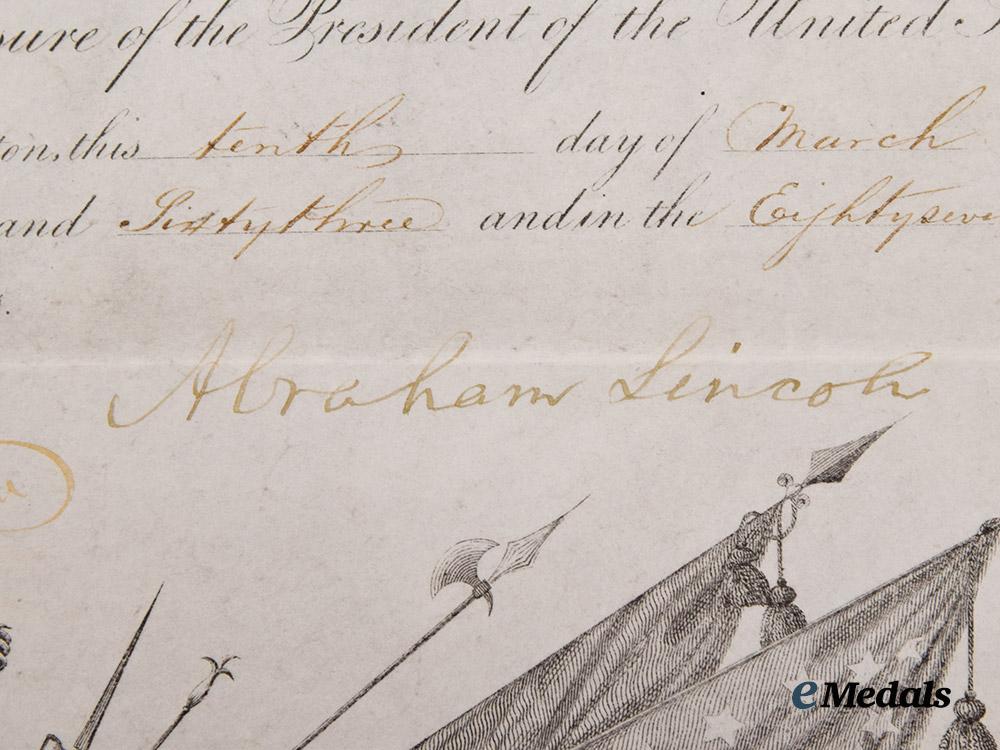 sure of the President of the United
ton, this tenth day of March
and Sixtythree and in the Eightyseve
Abraham Lincoln
eMedals